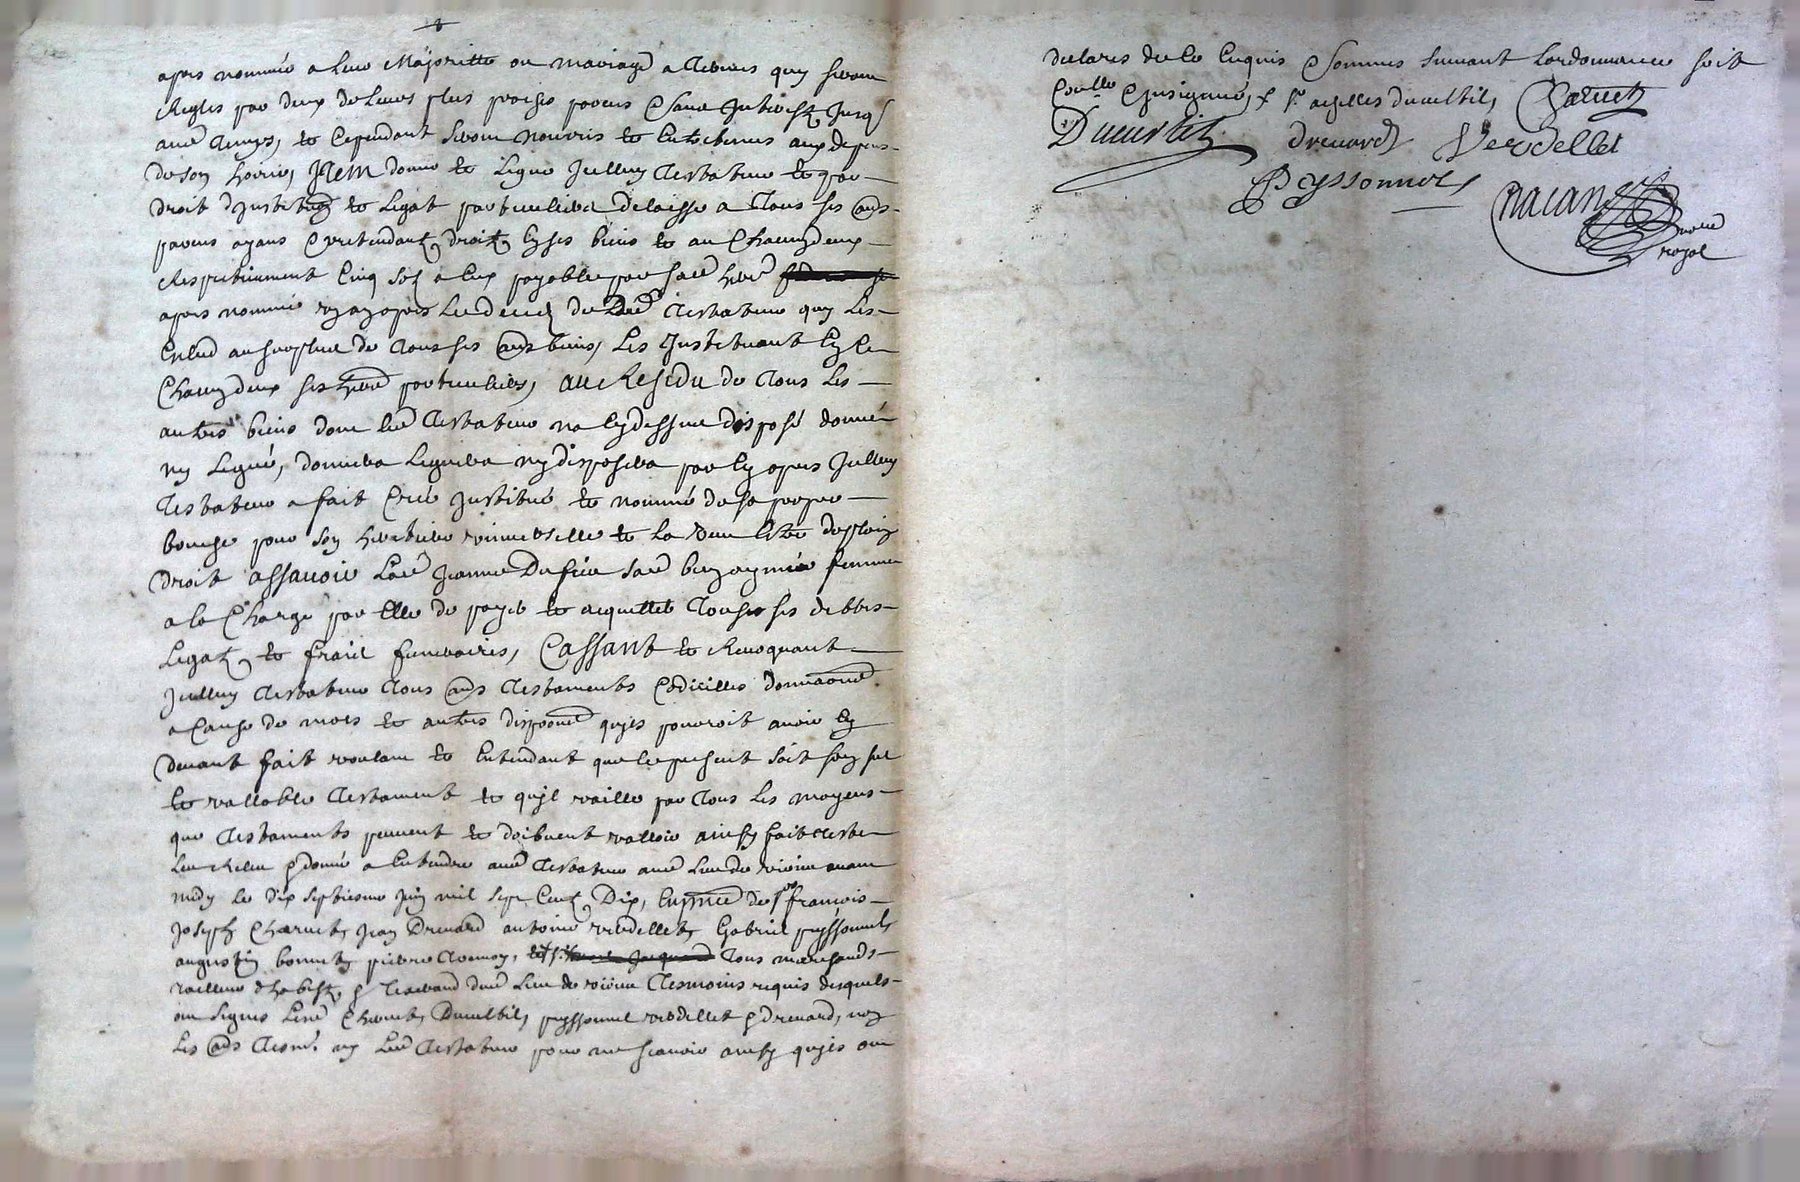 apres nommée a leur Majoritte ou mariage a termes quy seront
Regles par deux de leurs plus proches parens & sans Interest Jusqs
aud temps, et cependant seront nourris et entretenus aux depens
de son hoirie, Item donne et legue Jcelluy testateur et par
droit dinstiton et legat particulier delaisse a tous ses aues
parens ayans & pretendantz droitz en ses biens et au chacung deux
Respectivement cinq solz a eux payable par sad here
apres nommée après le decedz dud testateur quy les
exclud au surplus de tous ses aues biens, les Instituant en ce
chacung deux ses heres particuliers, au Residu de tous les
autres biens dont led testateur na cy dessus disposé donné
ny legué, donnera leguera ny disposera par cy apres Jcelluy
testateur a fait creé Institué et nommé de sa propre
bouche pour son heritiere universelle et la veut estre de plain
droit assavoir lad Jeanne Dufieu sad bien aymée femme
a la charge par elle de payer et acquitter tous ses debtes
legatz et fraix funeraires, Cassant et Revoquant
Jcelluy testateur tous aues testaments codicilles donnaons
a cause de mort et autres dispoons qujl pourroit avoir cy
devant fait voulant et entendant que le present soit son seul
et vallable testament et qujl vaille par tous les moyens
que testaments peuvent et doibvent valloir ainsy fait
leu Releu & donné a entendre aud testateur aud lieu de avant
midy le dix septiesme Juin mil sept centz Dix, en pnce de srs francois
Joseph Charvet, Jean Drevard antoine Verdellet, Gabriel peyssonnel,
augustin bonnet, pierre tous marchands
dud lieu de tesmoins requis desquels
ont signés led Charvet, Ducultil, peyssonnel verdellet & drevard, non
les aues tesm. ny led testateur pour ne scavoir ainsy qujls ont
declares de ce enquis & sommes suivant Lordonnance soit
Coulle & Insignué, & sr Ducultil, Charvet
Ducurtil drevard Verdellet
Peyssonnel
nore
royal